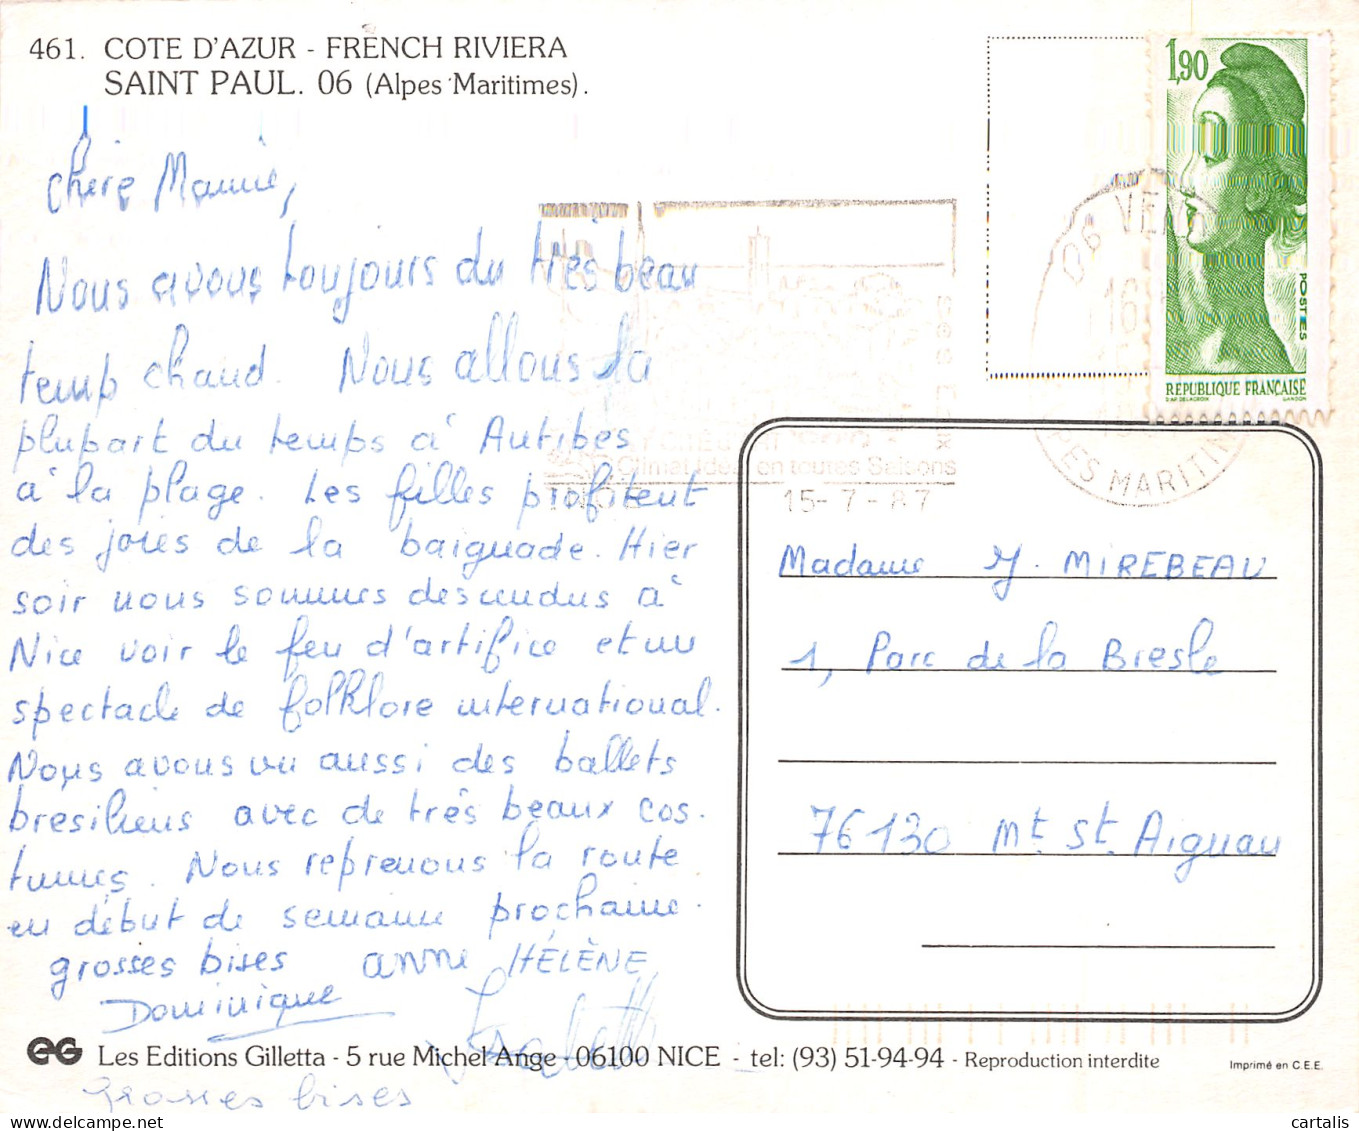 461. COTE D'AZUR - FRENCH RIVIERA
SAINT PAUL. 06 (Alpes Maritimes).
chère Mamie,
Nous avons toujours du très beau
temp chaud. Nous allons la
plupart du temps à Antibes
à la plage. Les filles profitent
des joies de la baignade. Hier
soir nous sommes descendus à
Nice voir le feu d'artifice et un
spectacle de folklore international.
Nous avons vu aussi des ballets
bresiliens avec de très beaux cos-
tumes. Nous reprenons la route
en début de semaine prochaine.
grosses bises anne HÉLÈNE
Dominique
grosses bises
1,90
POSTES
RÉPUBLIQUE FRANÇAISE
D'AP. DELACROIX GANDON
06 VEN
16
PES MARITIM
Climat idéal en toutes Saisons
15-7-87
Madame J. MIREBEAU
1, Parc de la Bresle
76130 Mt St. Aignan
EG Les Editions Gilletta - 5 rue Michel Ange - 06100 NICE - tel: (93) 51-94-94 - Reproduction interdite
Imprimé en C.E.E.
cartalis